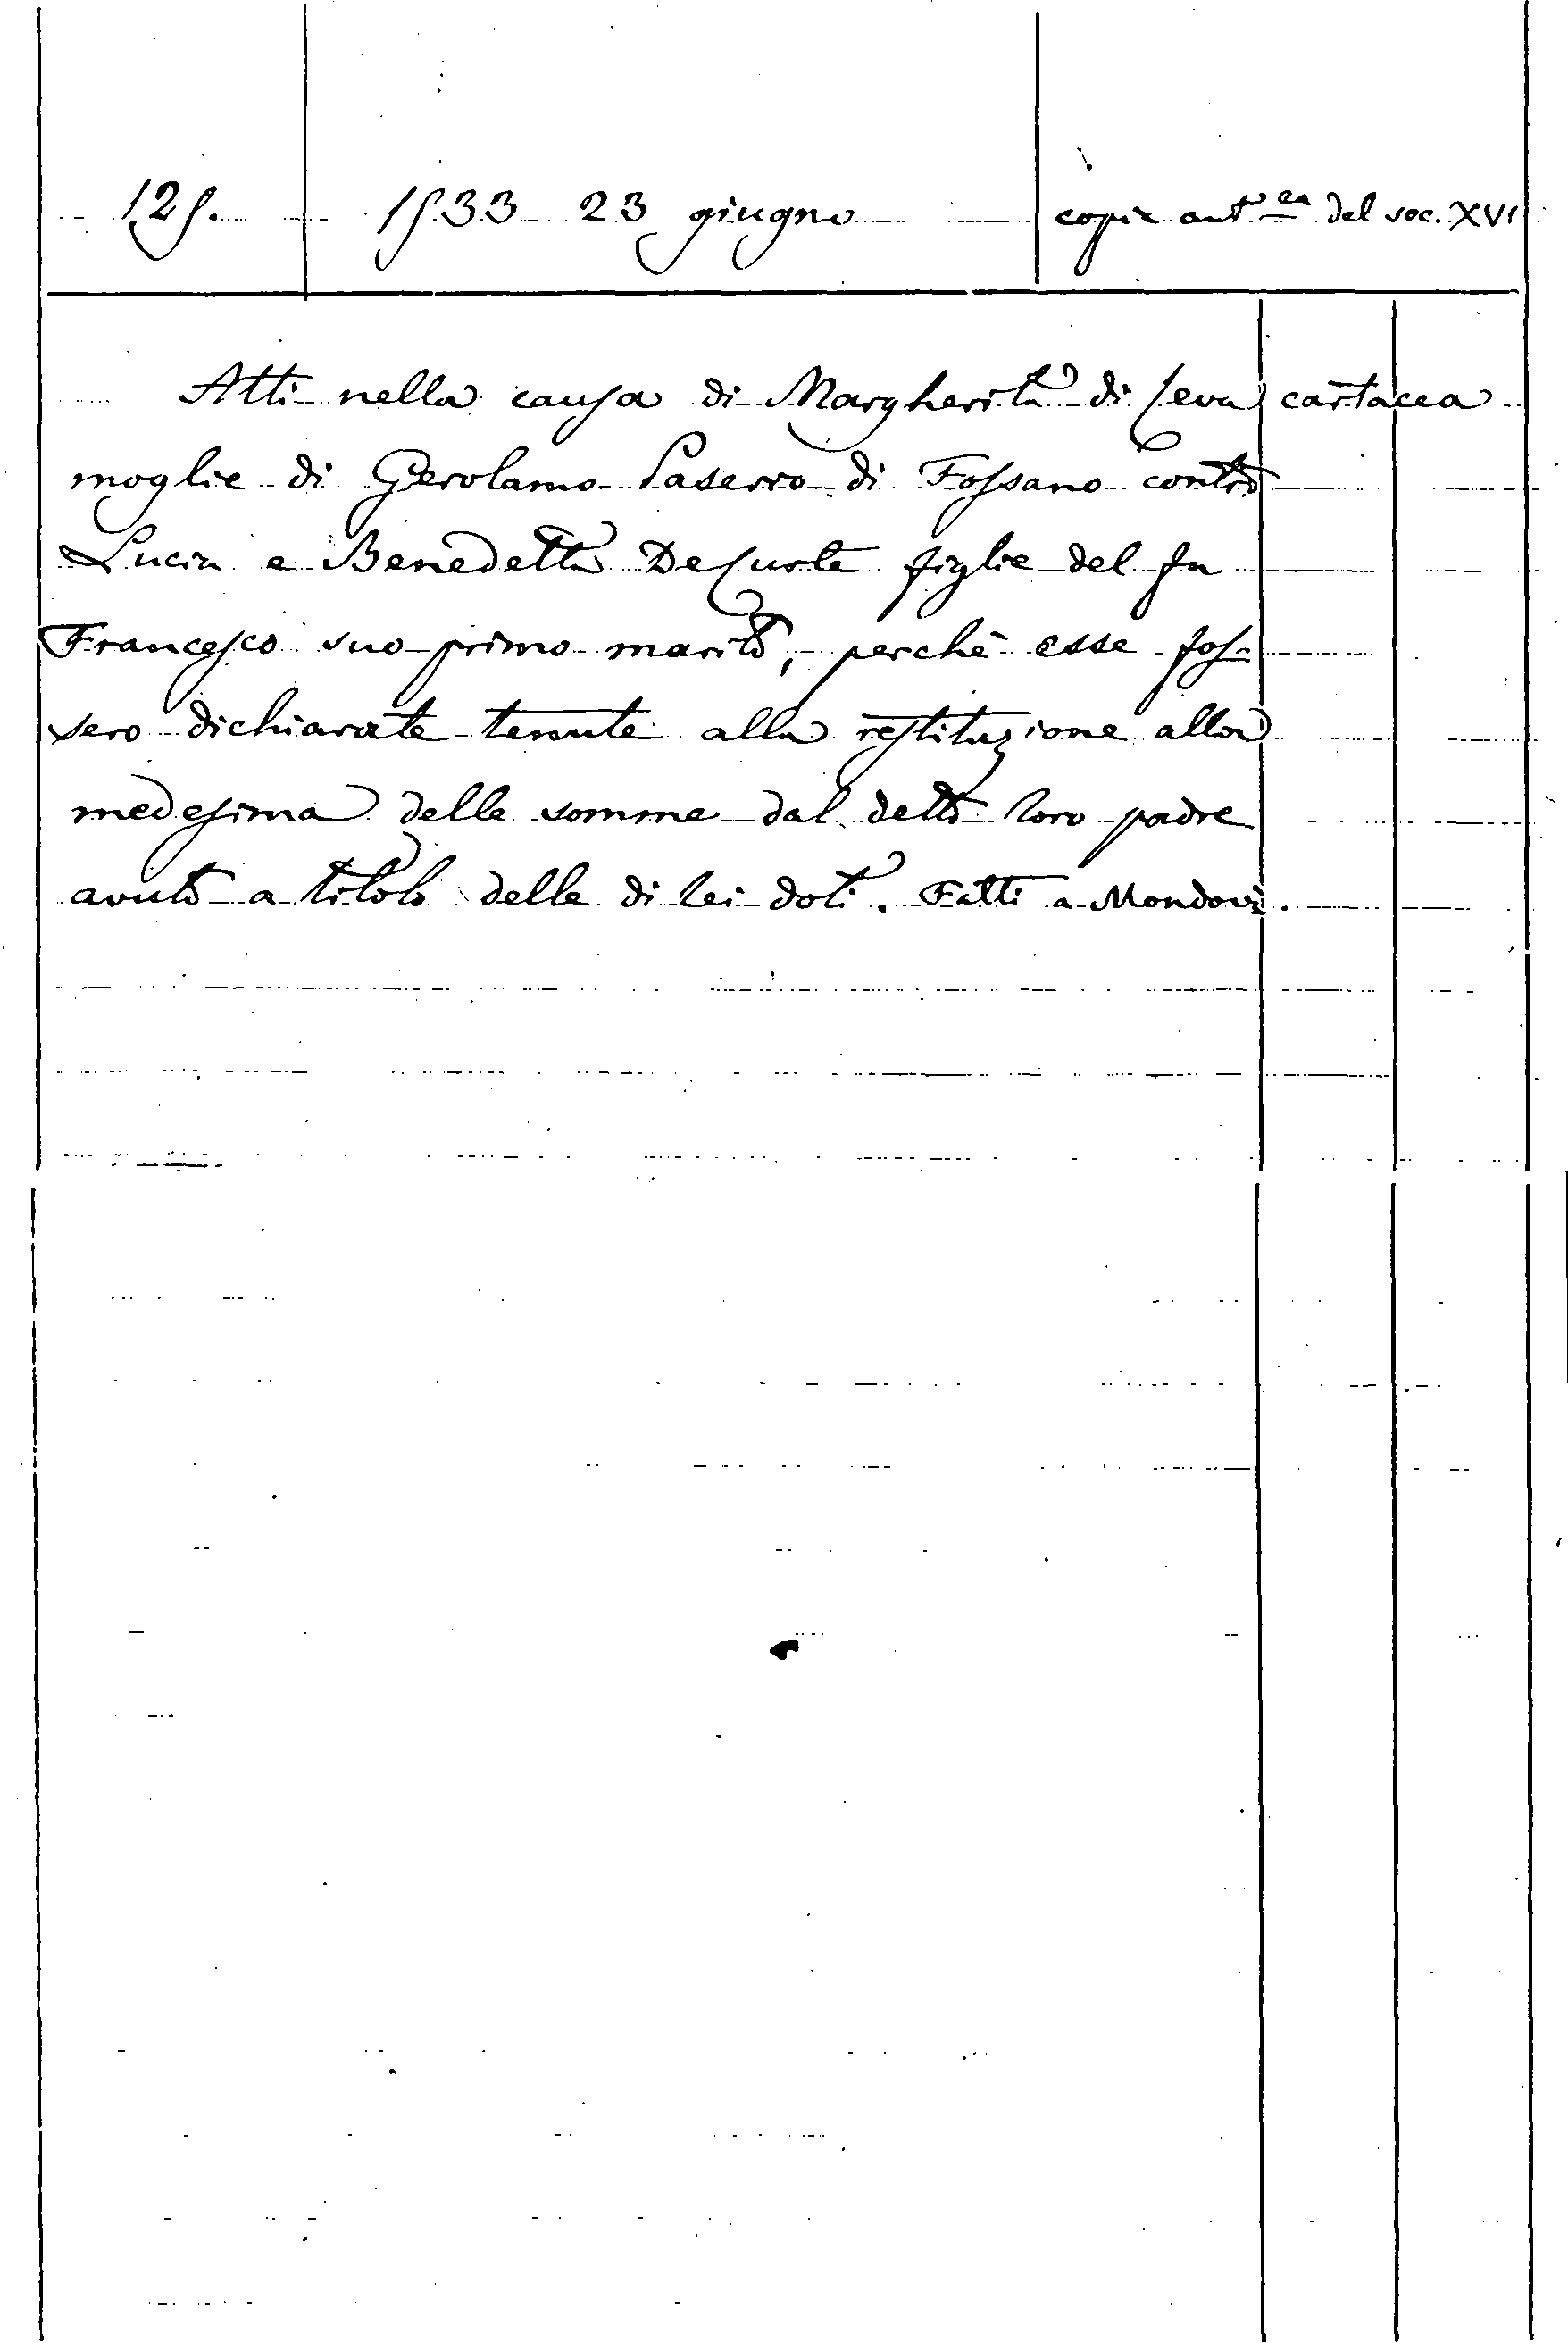 125. 1533 23 giugno copia aut.ca del sec. XVI
Atti nella causa di Margherita di Ceva cartacea
moglie di Gerolamo Paserio di Fossano contro
Lucia e Benedetta DeCurte figlie del fu
Francesco suo primo marito, perchè esse fos-
sero dichiarate tenute alla restituzione alla
medesima delle somme dal detto loro padre
avuto a titolo delle di lei doti. Fatti a Mondovì.